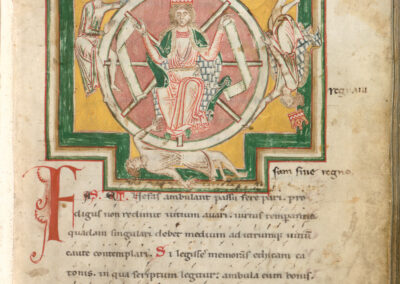 regnaui
sum sine regno
FAS ET nefas ambulant passu fere pari. pro
digus non redimit uitium auari. uirtus temperantia
quadam singulari debet medium ad utrumque uitiū
caute contemplari. Si legisse memoras ethicam ca
tonis. in qua scriptum legitur. ambula cum bonis.